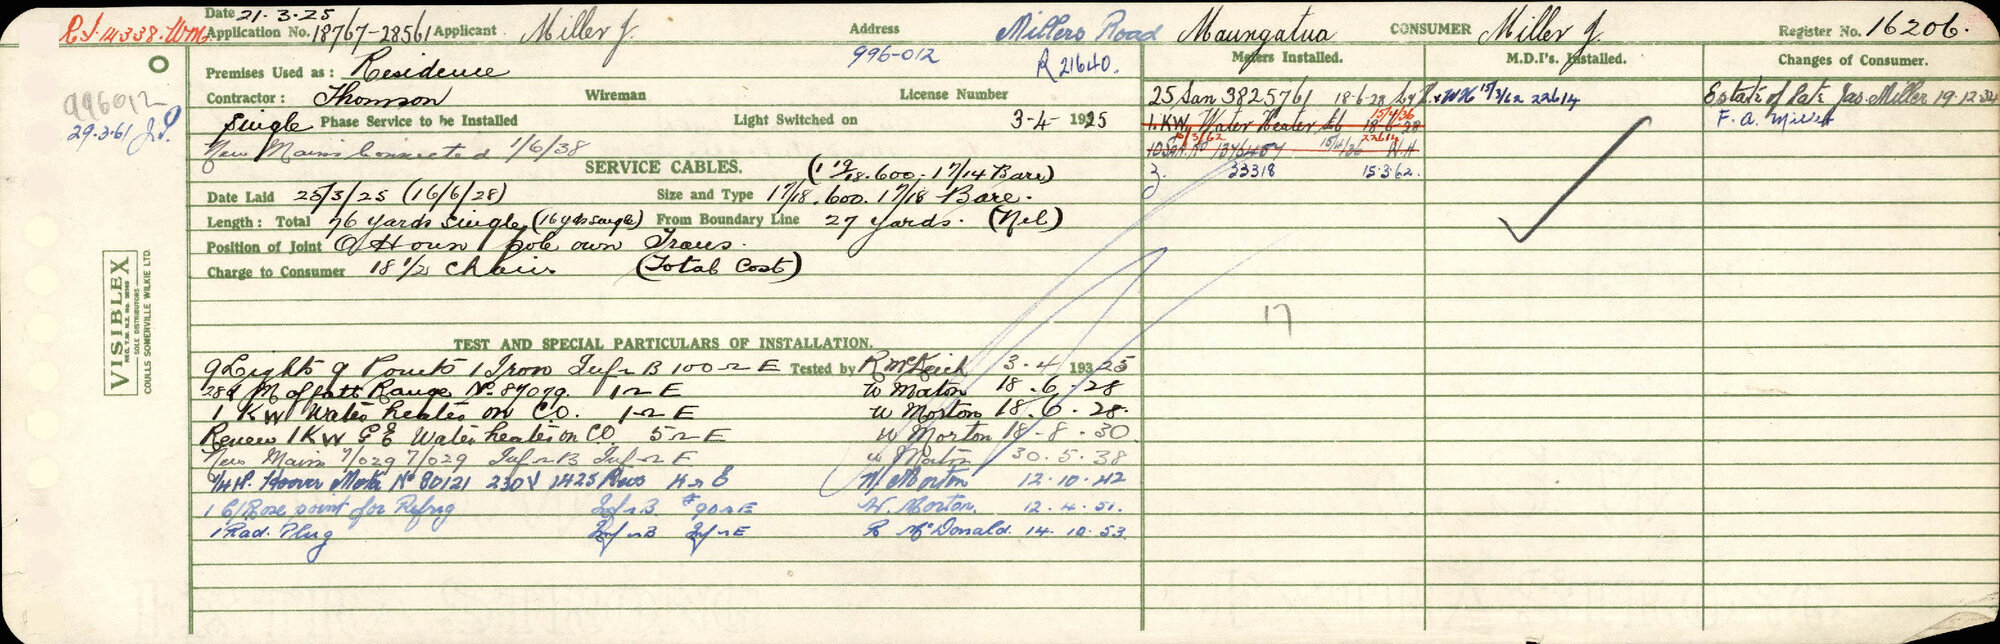 Date 21.3.25
R.I. 14338. Wm Application No. 18767-28561 Applicant Miller J. Address Millers Road Maungatua CONSUMER Miller J. Register No. 16206.
996-012 R 21640.
Premises Used as: Residence Meters Installed. M.D.I's. Installed. Changes of Consumer.
Contractor: Thomson Wireman License Number 25 San 3825761 18-6-28 15/3/62 22614 Estate of late Jas. Miller 19.12.34
996012
29.3.61
Single Phase Service to be Installed Light Switched on 3-4-1925 1. KW Water Heater 18-6-28 15/4/36 F. A. Miller
New Mains Connected 1/6/38 15/3/62 22614
10 San. No 1346457 15/4/36 W.H
SERVICE CABLES. (1 19/18.600.-17/14 Bare) 33318 15.3.62.
Date Laid 25/3/25 (16/6/28) Size and Type 17/18.600.17/18 Bare.
Length: Total 76 yards single (16 yds single) From Boundary Line 27 yards. (Nil)
Position of Joint O.H own pole own Trans.
Charge to Consumer 18 1/2 chains (Total Cost)
17
VISIBLEX
REG. T.M. N.Z. NO.
SOLE DISTRIBUTORS
COULLS SOMERVILLE WILKIE LTD.
TEST AND SPECIAL PARTICULARS OF INSTALLATION.
9 Lights 9 Points 1 Iron Inf Ω B 100 Ω E Tested by R McKeich 3-4 1925
Moffatt Range No. 87079. 1 Ω E W Morton 18.6-28
1 KW Water heater on CO. 1 Ω E W Morton 18.6.28.
Renew 1 KW GE Water heater on CO 5 Ω E W Morton 18-8-30
New Mains 7/029 7/029 Inf Ω B Inf Ω E W Morton 30.5.38
1/4 H.P. Hoover Motor No 80121 230V 1425 Revs 4 Ω E W Morton 12.10.42
1 C/Rose point for Refrig Inf Ω B. 90 Ω E W. Morton. 12.4.51.
1 Rad. Plug Inf Ω B Inf Ω E R McDonald. 14.10.53.